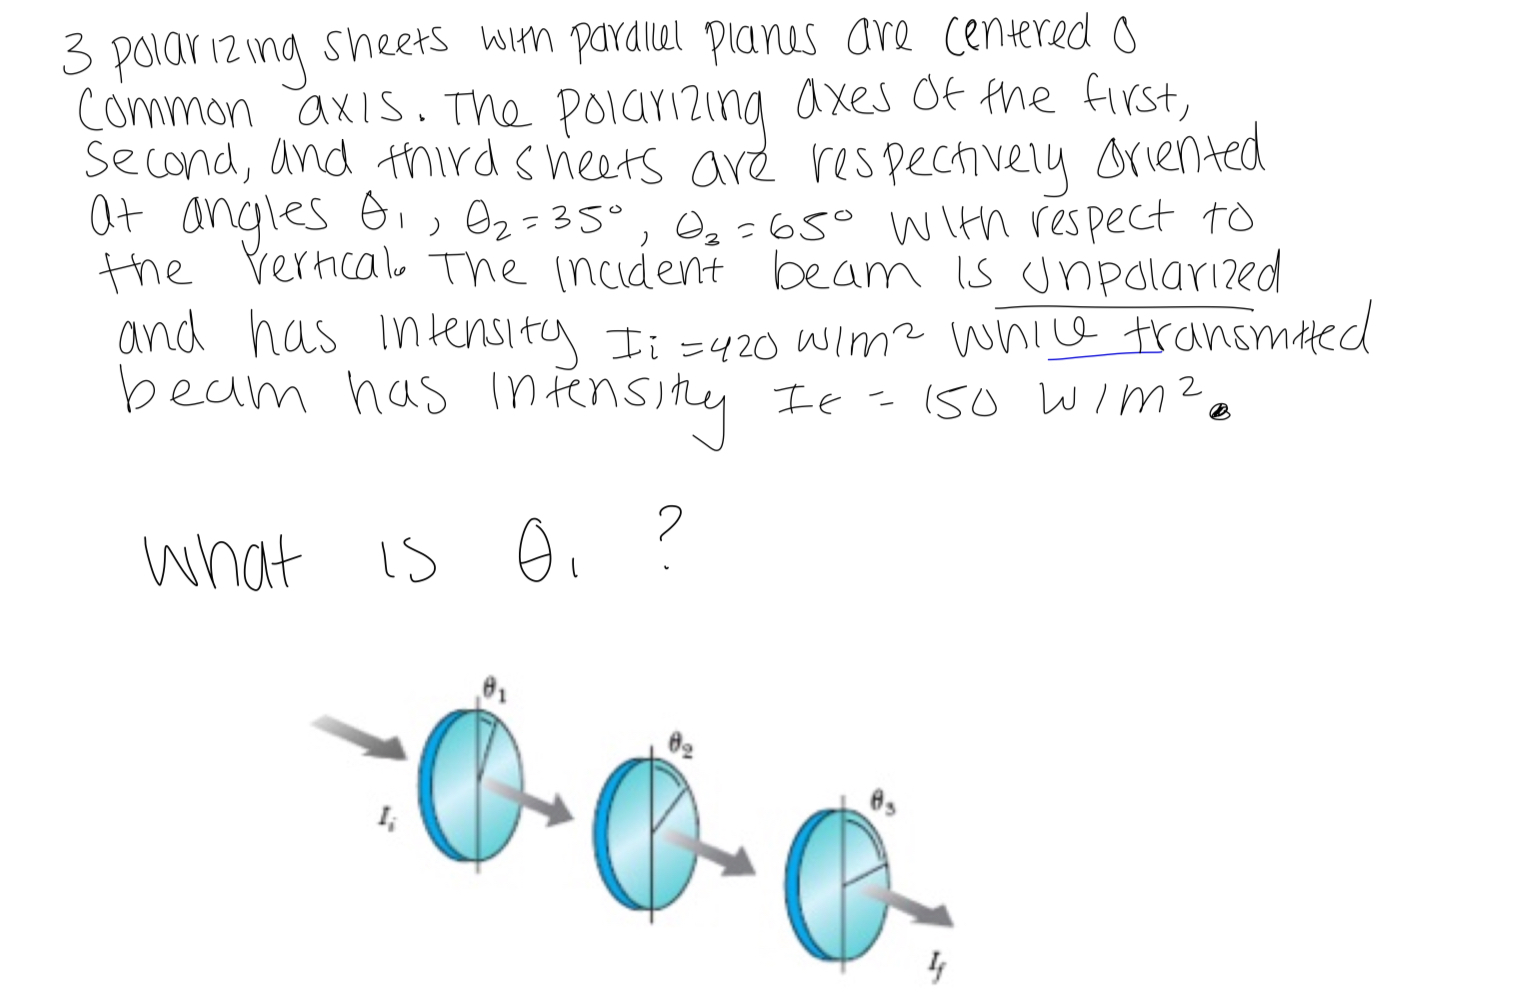 3 polarizing sheets with parallel planes are centered o
common axis. The polarizing axes of the first,
second, and third sheets are respectively oriented
at angles θ₁, θ₂=35°, θ₃=65° with respect to
the vertical. The incident beam is unpolarized
and has intensity Iᵢ =420 W/m² while transmitted
beam has intensity If = 150 W/m².
What is θ₁ ?
θ₁
θ₂
θ₃
Iᵢ
If